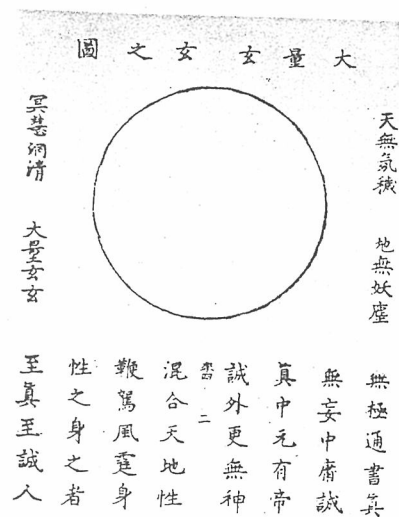 大量玄玄之圖
天無氛穢 地無妖塵
冥慧洞清 大量玄玄
無極通書真
無妄中庸誠
真中元有帝
誠外更無神
二
混合天地性
鞭駕風霆身
性之身之者
至真至誠人